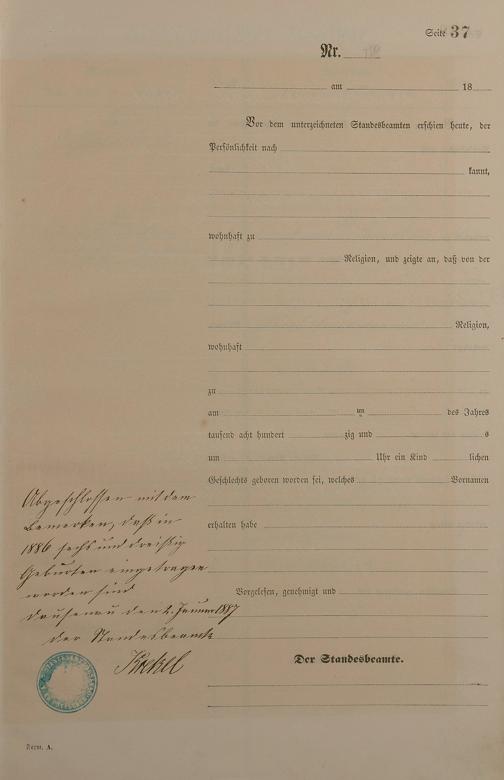 Seite 37
Nr.
am 18
Vor dem unterzeichneten Standesbeamten erschien heute, der
Persönlichkeit nach
kannt,
wohnhaft zu
Religion, und zeigte an, daß von der
Religion,
wohnhaft
zu
am um des Jahres
tausend acht hundert zig und s
um Uhr ein Kind lichen
Geschlechts geboren worden sei, welches Vornamen
erhalten habe
Vorgelesen, genehmigt und
Der Standesbeamte.
Abgeschlossen mit dem
Bemerken, daß in
1886 sechs und dreißig
Geburten eingetragen
worden sind
Dausenau den 2. Januar 1887
Der Standesbeamte
Form. A.